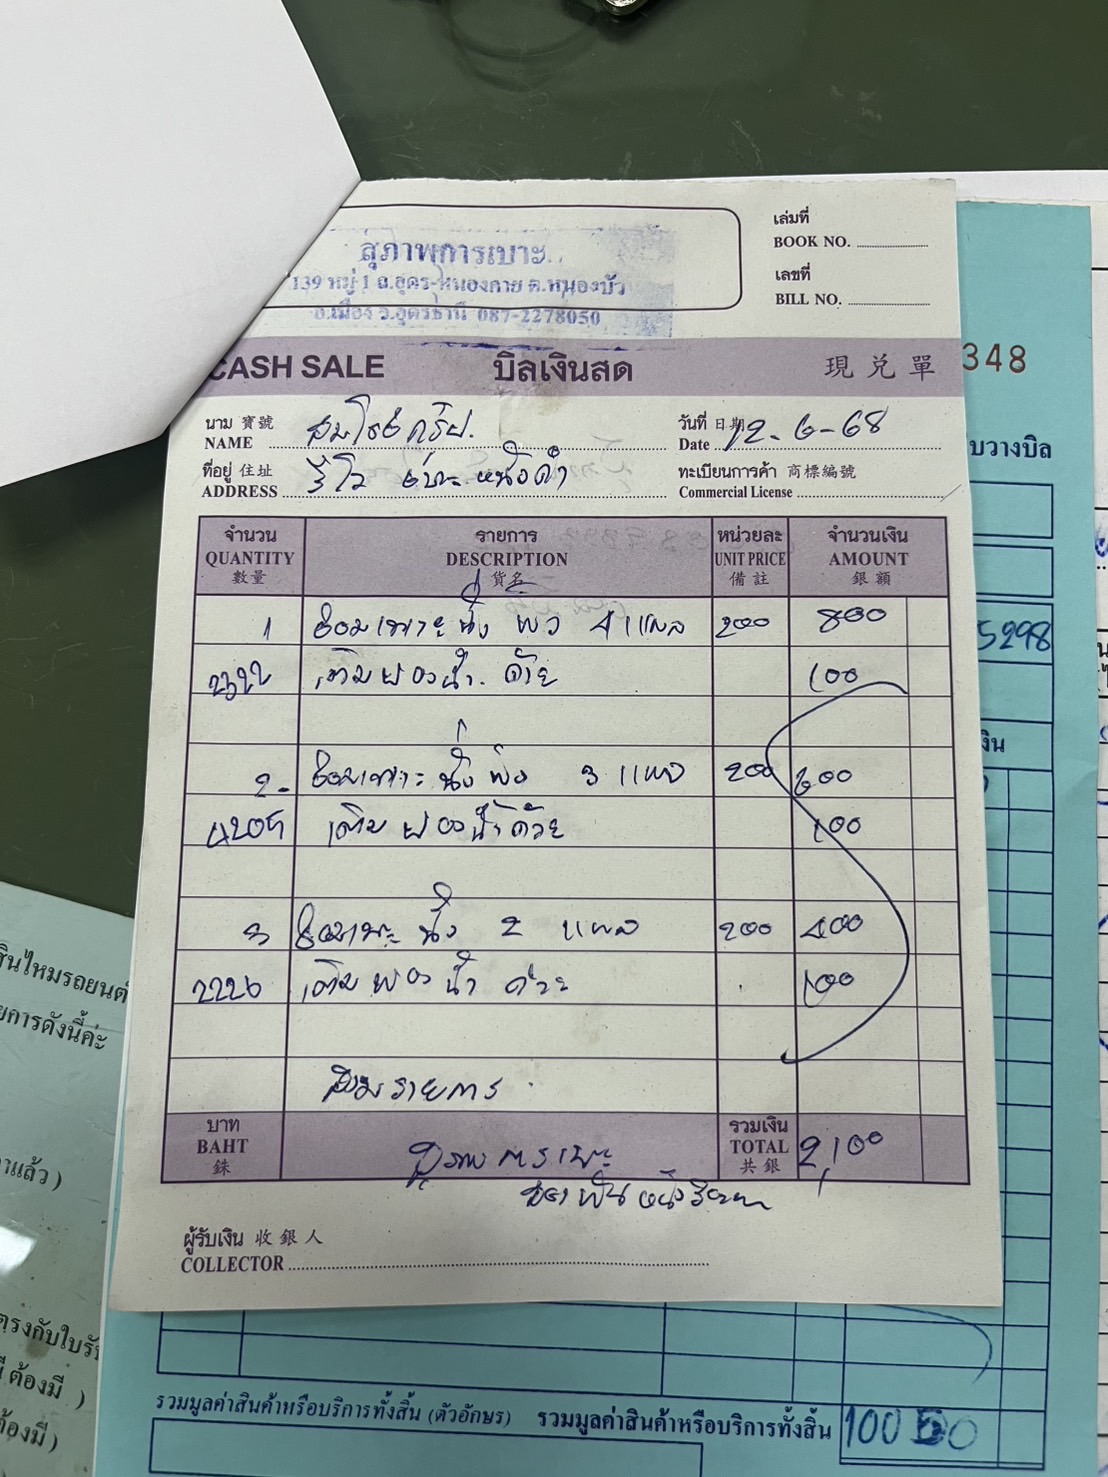 สุภาพการเบาะ
139 หมู่ 1 ถ.อุดร-หนองคาย ต.หนองบัว
อ.เมือง จ.อุดรธานี 087-2278050
เล่มที่
BOOK NO.
เลขที่
BILL NO.
CASH SALE บิลเงินสด 現兌單
นาม 寶號
NAME
วันที่ 日期
Date 12-6-68
ที่อยู่ 住址
ADDRESS
ทะเบียนการค้า 商標編號
Commercial License
จำนวน รายการ หน่วยละ จำนวนเงิน
QUANTITY DESCRIPTION UNIT PRICE AMOUNT
數量 貨名 備註 銀額
1 ซ่อมเบาะนั่ง 4 แผล 200 800
เติมฟองน้ำ ด้วย 100
2- ซ่อมเบาะ นั่ง พิง 3 แผล 200 600
เติมฟองน้ำด้วย 100
3 ซ่อมเบาะ นั่ง 2 แผล 200 400
2226 เติมฟองน้ำ ด้วย 100
สามรายการ
บาท
BAHT
銖
สุภาพการเบาะ
รวมเงิน
TOTAL 2,100
共銀
สองพันหนึ่งร้อยบาท
ผู้รับเงิน 收銀人
COLLECTOR
348
บวางบิล
5298
งิน
สินไหมรถยนต์
ยการดังนี้ค่ะ
าแล้ว )
ตรงกับใบรับ
มี ต้องมี )
ต้องมี )
รวมมูลค่าสินค้าหรือบริการทั้งสิ้น (ตัวอักษร) รวมมูลค่าสินค้าหรือบริการทั้งสิ้น